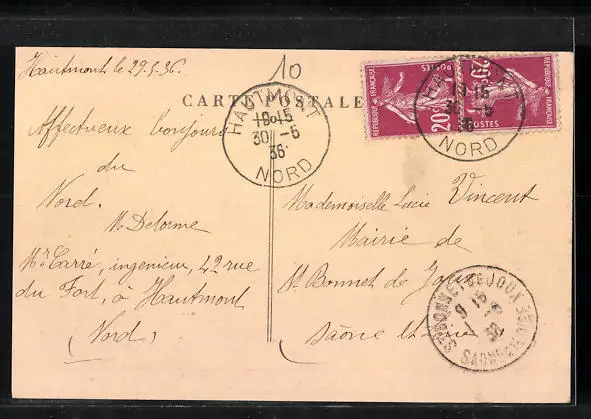 Hautmont le 29.5.36.
10
CARTE POSTALE
Affectueux bonjours
du
Nord.
M Delorme
Mr Carré, ingenieur, 42 rue
du Fort, à Hautmont
(Nord)
Mademoiselle Lucie Vincent
Mairie de
St Bonnet de Joux
Saône et Loire
HAUTMONT
18 15
30 - 5
36
NORD
REPUBLIQUE FRANÇAISE
POSTES
20c
REPUBLIQUE FRANÇAISE
POSTES
20c
HAUTMONT
18 15
30 - 5
36
NORD
ST BONNET-DE-JOUX
9 15
36
SAONE-ET-LOIRE